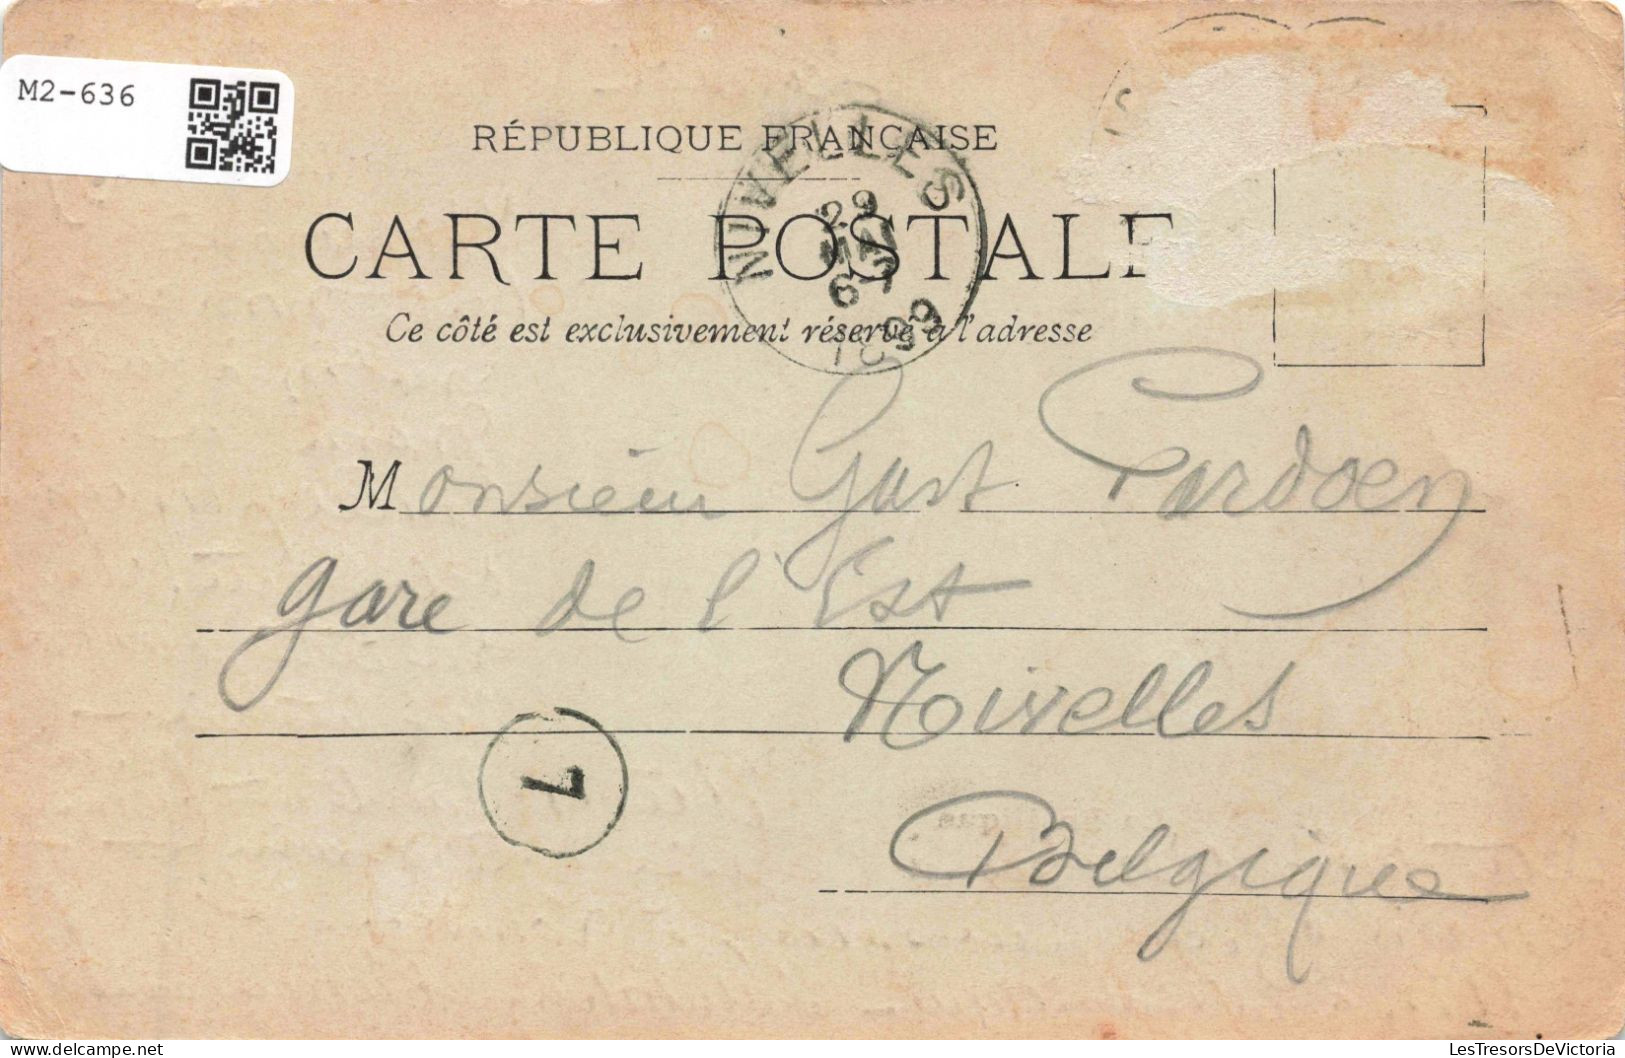 M2-636
RÉPUBLIQUE FRANÇAISE
CARTE POSTALE
Ce côté est exclusivement réservé à l'adresse
NIVELLES
1899
Monsieur Gast Pardoen
gare de l'Est
Nivelles
Belgique
1
LesTresorsDeVictoria